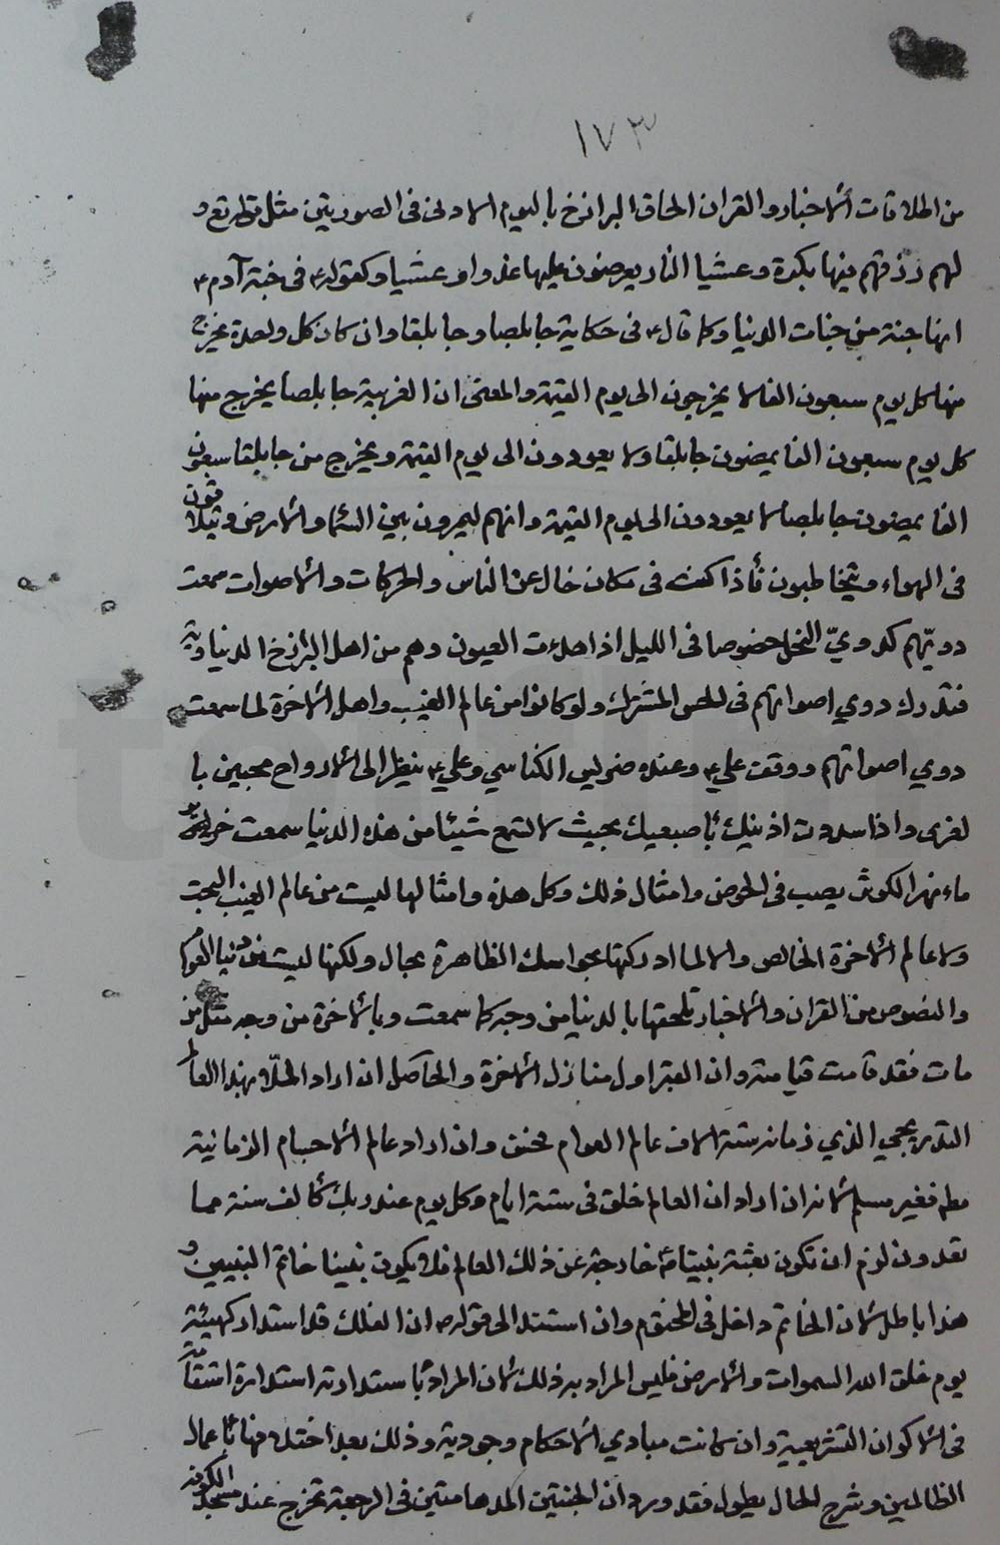 ١٧٣
من اطلاقات الاخبار والقران الحاق البرازخ باليوم الاولى فى الصورتين مثل قوله تع و
لهم رزقهم فيها بكرة وعشيا النار يعرضون عليها غدوا وعشيا وكقوله ع فى جنة آدم ع
انها جنة من جنات الدنيا وكما قال ع فى حكاية جابلصا وجابلقا وان كان كل واحدة يخرج
منها كل يوم سبعون الفا لا يخرجون الى يوم القيمة والمعنى ان الغربية جابلصا يخرج منها
كل يوم سبعون الفا يمضون جابلقا ولا يعودون الى يوم القيمة ويخرج من جابلقا سبعون
الفا يمضون جابلصا لا يعودون الى يوم القيمة وانهم ليمرون بين السماء والارض ويتلاقون
فى الهواء ويتخاطبون فأذا كنت فى مكان خال عن الناس والحركات والاصوات سمعت
دويّهم كدويّ النحل خصوصا فى الليل اذا هدات العيون وهم من اهل البرازخ الدنياوية
فتدرك دوي اصواتهم فى الحس المشترك ولو كانوا من عالم الغيب واهل الاخرة لما سمعت
دوي اصواتهم ووقف علي ع وعنده ضوليس الكناسي وعلي ع ينظر الى الارواح محبين با
لغرى واذا سددت اذنيك بأصبعيك بحيث لا تسمع شيئا من هذه الدنيا سمعت خرير
ماء نهر الكوثر يصب فى الحوض وامثال ذلك وكل هذه وامثالها ليست من عالم الغيب البحت
ولا عالم الاخرة الخالص والا لما ادركتها بحواسك الظاهرة بحال ولكنها ليست من دنيا العوام
والنصوص من القران والاخبار تلحقها بالدنيا من وجه كما سمعت وبالاخرة من وجه مثل من
مات فقد قامت قيامته وان القبر اول منازل الاخرة والحاصل ان اراد الملّا بهذا العالم
التدريجي الذي زمانه ستة الاف عالم العوام فحسن وان اراد عالم الاجسام الزمانية
مطم فغير مسلم لانه ان اراد ان العالم خلق فى ستة ايام وكل يوم عند ربك كألف سنة مما
تعدون لزم ان تكون بعثة نبينا ص خارجة عن ذلك العالم فلا يكون نبينا خاتم النبيين و
هذا باطل لان الخاتم داخل فى المختوم وان استند الى قوله ص ان الفلك قد استدار كهيئة
يوم خلق الله السموات والارض فليس المراد به ذلك لان المراد بأستدارته استدارة اشتقاقية
فى الاكوان التشريعية وان كانت مبادي الاحكام وجودية وذلك بعد اختلافها بأعمال
الظالمين وشرح الحال يطول فقد ورد ان الجنتين المدهامتين فى الرجعة تخرج عند مسجد الكوفة